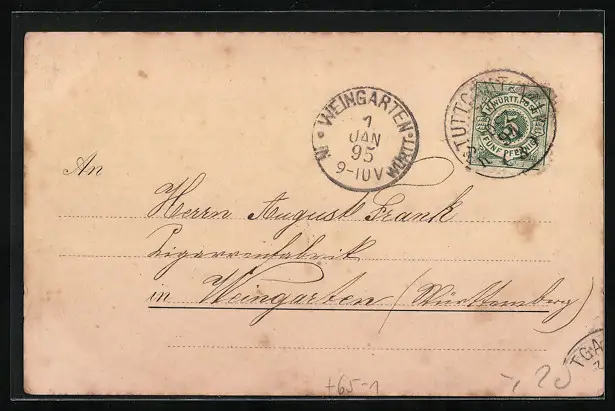 WEINGARTEN
IN WÜRTT.
1
JAN
95
9-10 V
K. WÜRTT. POST
5
FÜNF PFENNIG
An
Herrn August Frank
Cigarrenfabrik
in Weingarten (Württemberg)
+65-1
20